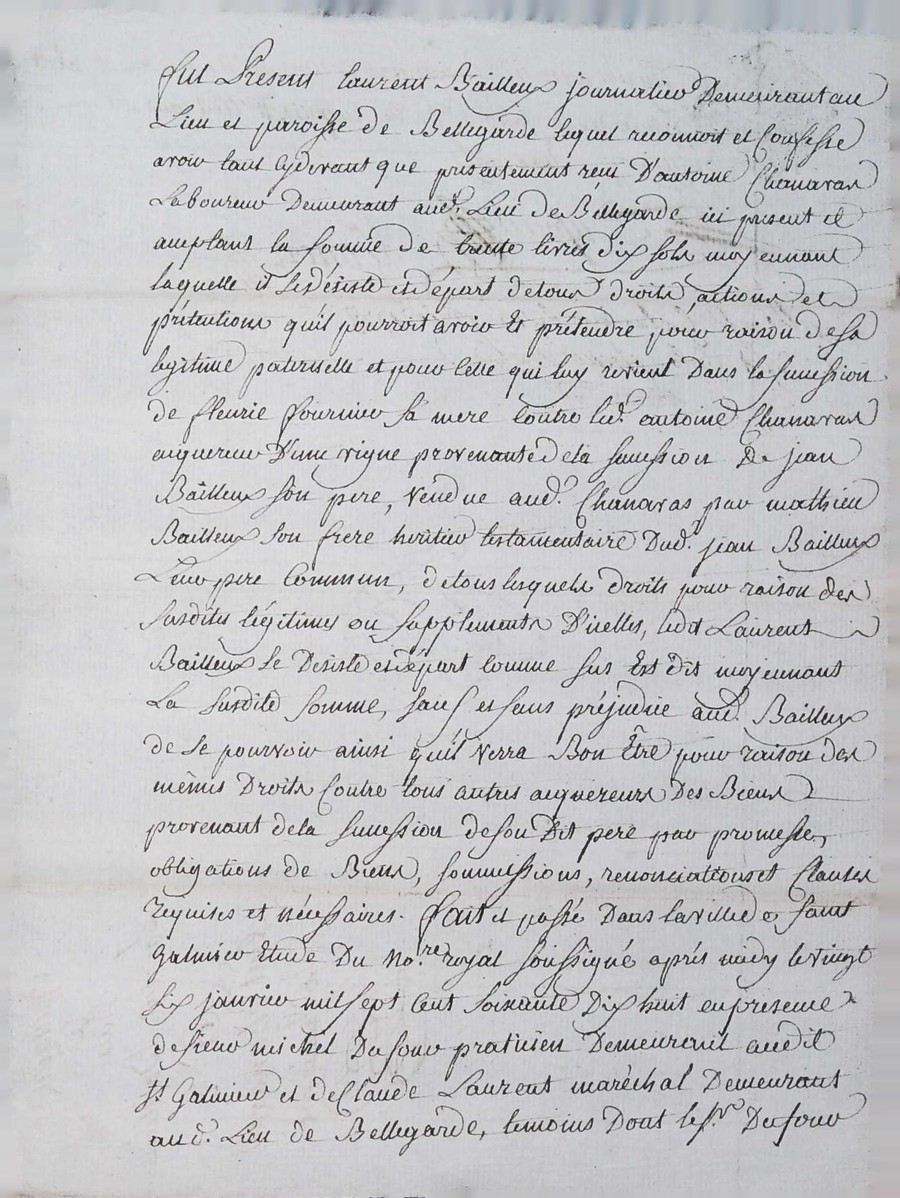 fut Présent Laurent Bailleux journalier Demeurant au
Lieu et paroisse de Bellegarde lequel reconnoit et Confesse
avoir tant cydevant que présentement reçu D'antoine Chanavas
Laboureur Demeurant aud. Lieu de Bellegarde ici présent et
acceptant la somme de trente livres dix sols moyennant
laquelle il se désiste et départ de tous droits, actions et
prétentions qu'il pourroit avoir et prétendre, pour raison de sa
légitime paternelle et pour celle qui luy revient Dans la succession
de fleurie fournier sa mere contre led. antoine Chanavas
acquereur D'une vigne provenante de la succession De jean
Bailleux son pere, vendue aud. Chanavas par mathieu
Bailleux son frere héritier testamentaire Dud. jean Bailleux
Leur pere Commun, de tous lesquels droits pour raison des
susdites légitimes ou supplements D'icelles, ledit Laurent
Bailleux se Désiste et départ comme sus Est dit moyennant
La susdite somme, sauf et sans préjudice aud. Bailleux
de se pourvoir ainsi qu'il verra Bon Être pour raison des
mêmes Droits Contre tous autres acquereurs Des Biens
provenant de la succession de son Dit pere par promesse,
obligations de Biens, soumissions, renonciations et Clauses
requises et nécessaires. fait et passé Dans la ville de saint
Galmier Etude Du No.re royal soussigné après midy le vingt
six janvier mil sept cent soixante Dix huit en présence
de sieur michel Dufour praticien Demeurant audit
St Galmier et de Claude Laurent maréchal Demeurant
aud. Lieu de Bellegarde, témoins Dont le sr. Dufour